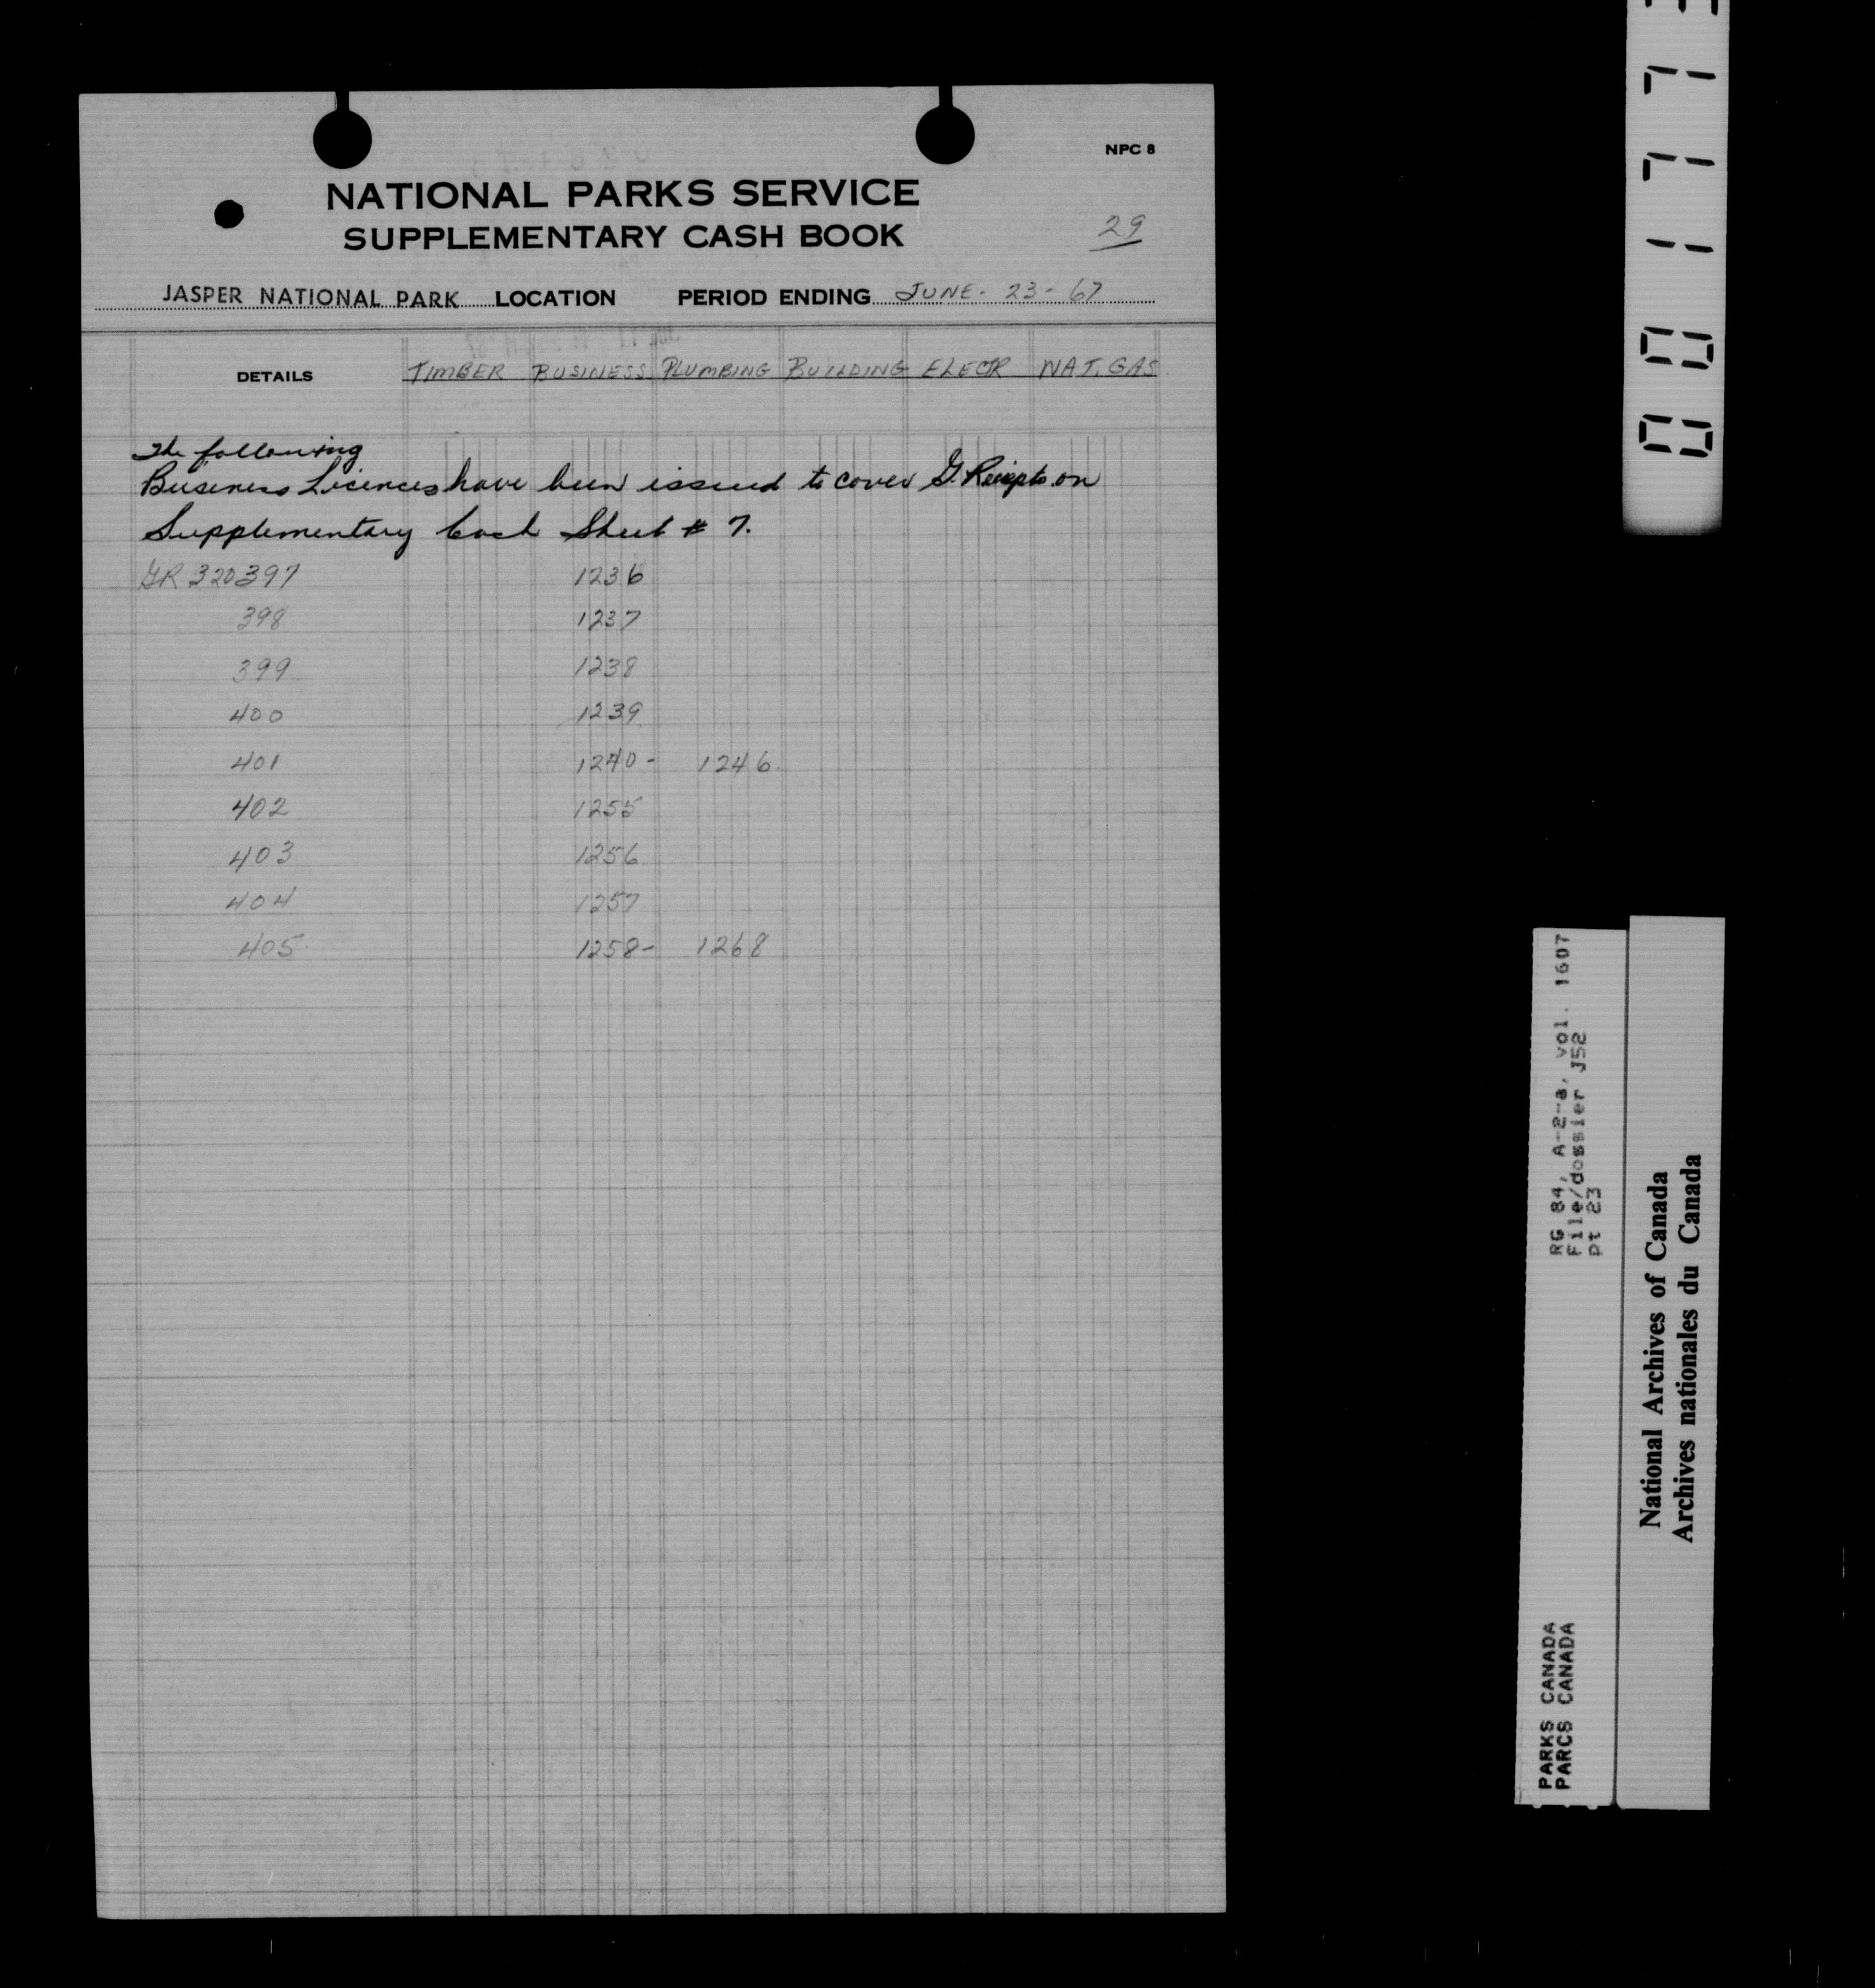 NPC 8
NATIONAL PARKS SERVICE
SUPPLEMENTARY CASH BOOK
29
JASPER NATIONAL PARK LOCATION PERIOD ENDING JUNE - 23 - 67
DETAILS TIMBER BUSINESS PLUMBING BUILDING ELECTR NAT. GAS
The following
Business Licences have been issued to cover G. Receipts on
Supplementary Cash Sheet # 7.
GR 320397 1236
398 1237
399 1238
400 1239
401 1240 - 1246
402 1255
403 1256
404 1257
405 1258 - 1268
RG 84, A-2-a, vol. 1607
File/dossier J52
pt 23
PARKS CANADA
PARCS CANADA
National Archives of Canada
Archives nationales du Canada